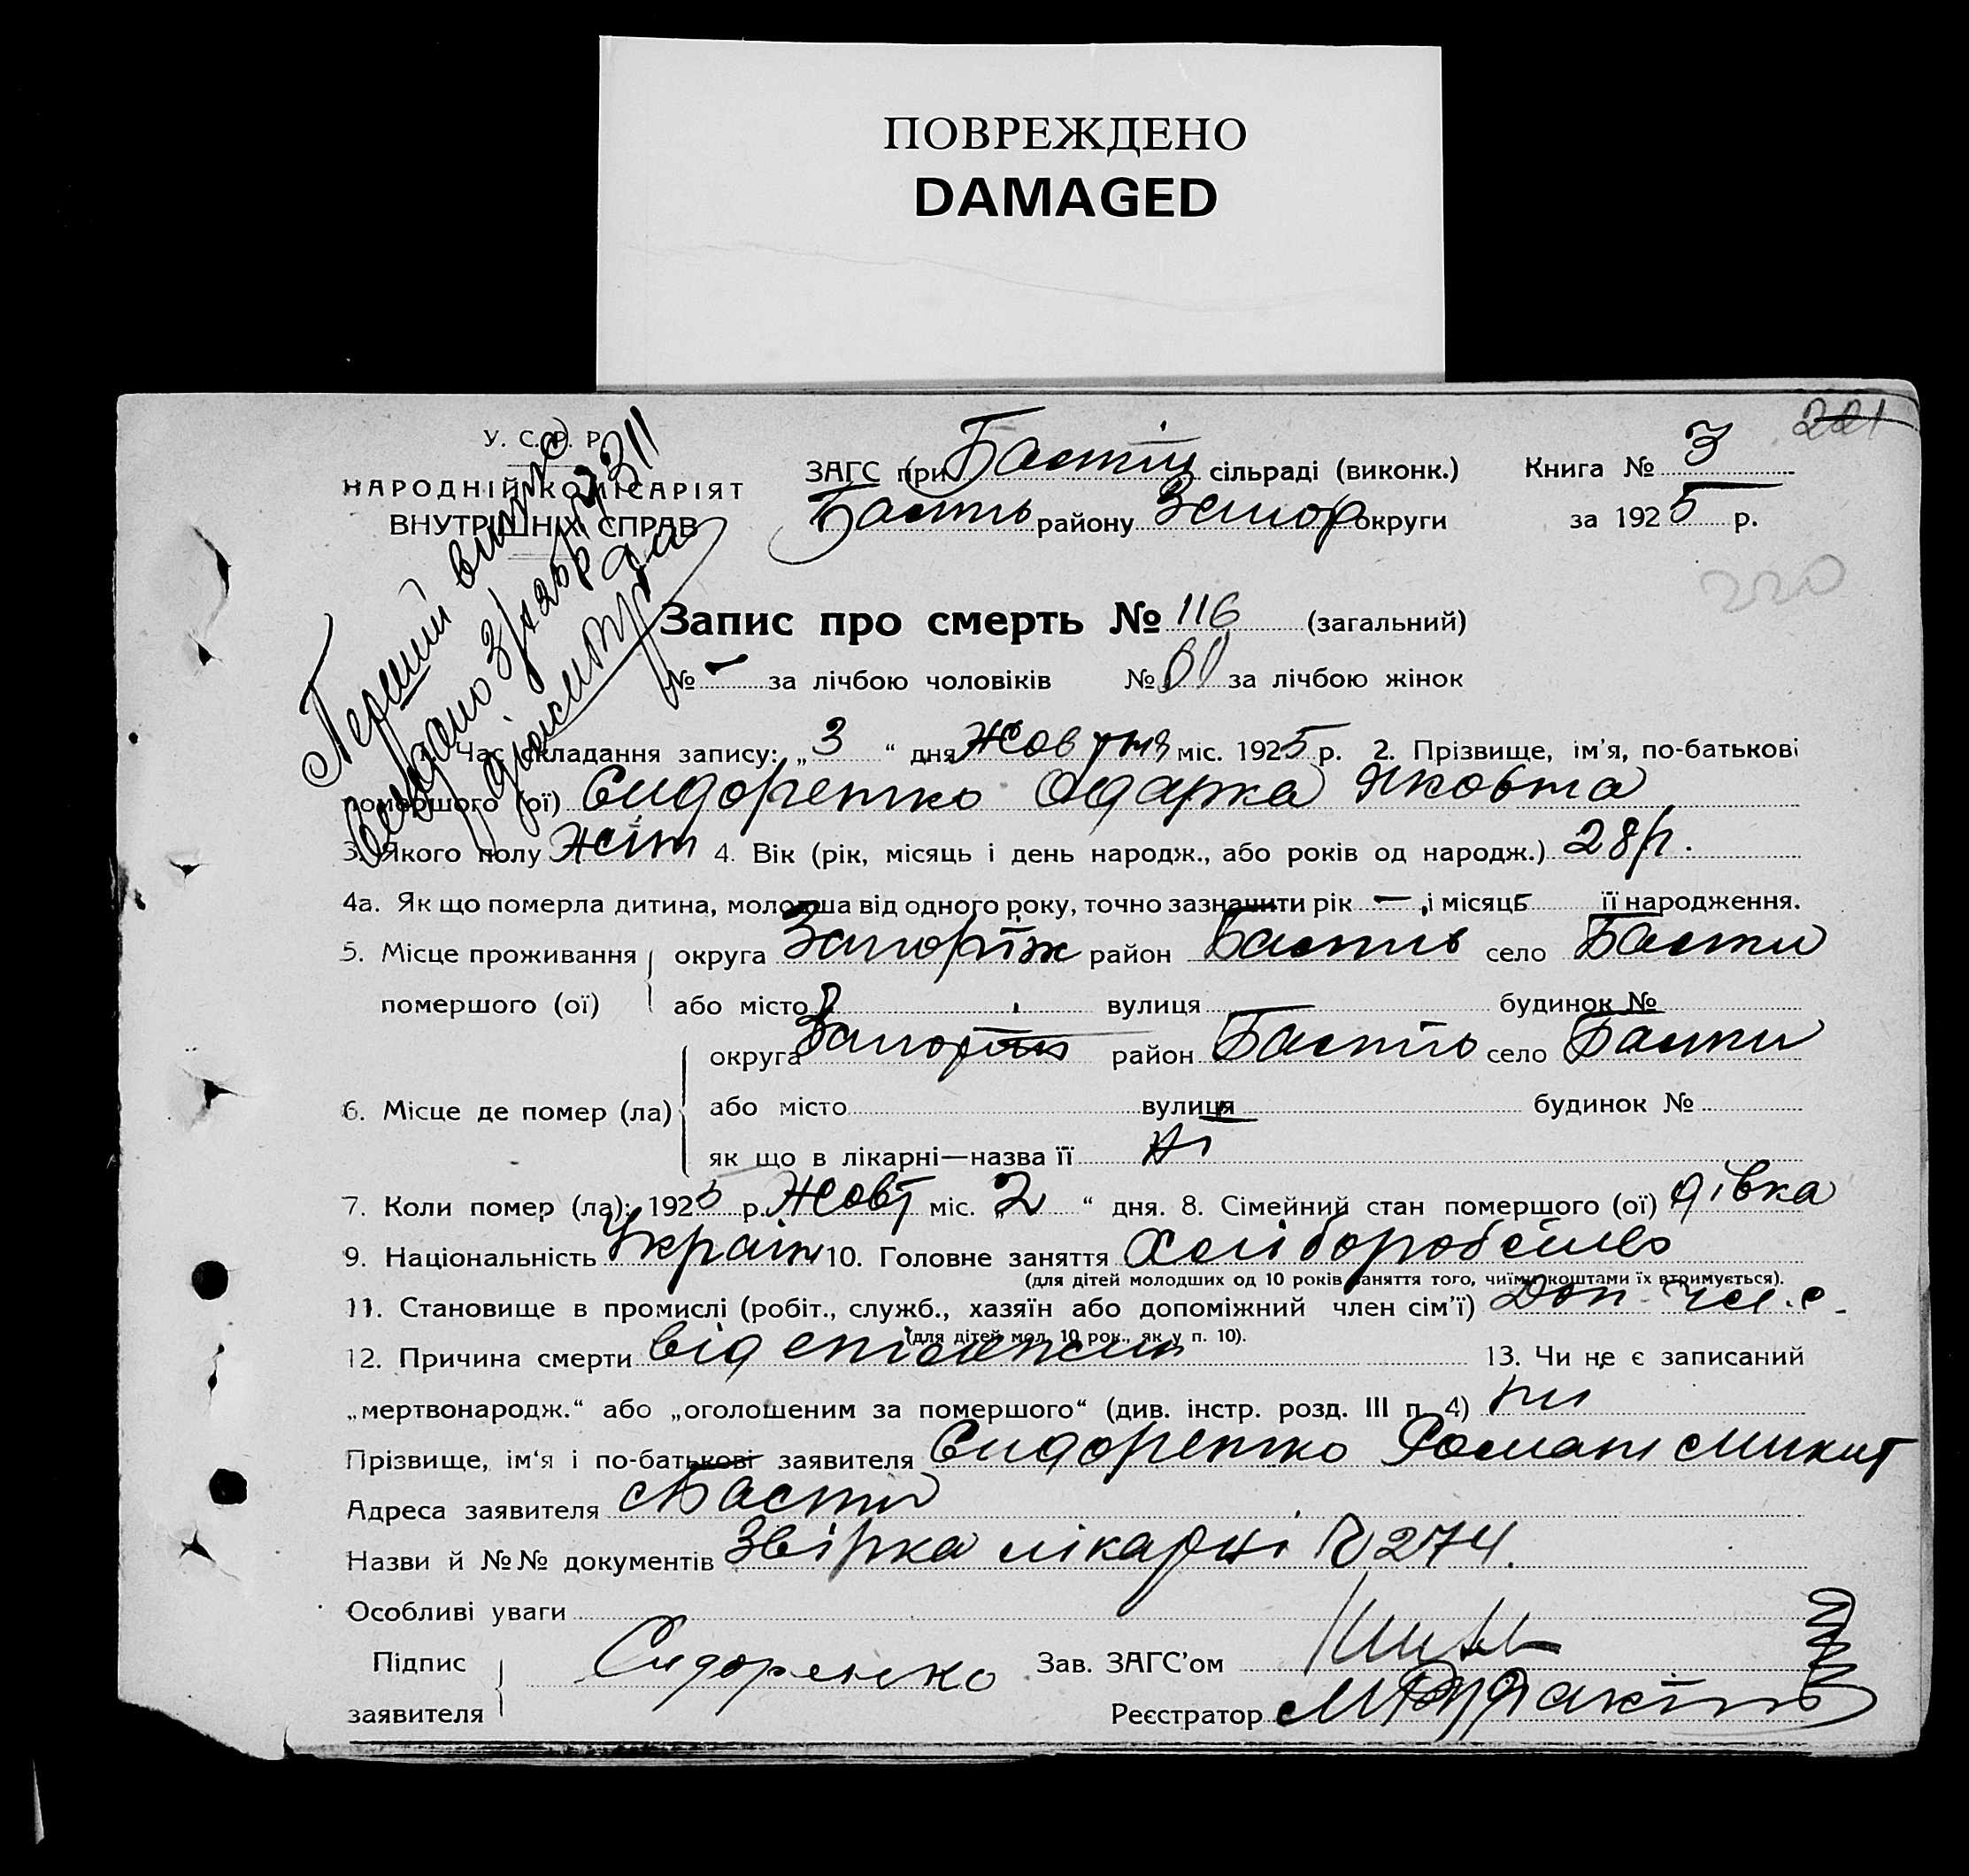 ПОВРЕЖДЕНО
DAMAGED
221
У. С. Р. Р.
НАРОДНІЙ КОМІСАРІЯТ
ВНУТРІШНІХ СПРАВ
ЗАГС при сільраді (виконк.) Книга № 3
району Запор округи за 1925 р.
220
Перший випис
видано
Запис про смерть № 116 (загальний)
№ — за лічбою чоловіків № за лічбою жінок
Час складання запису: „3“ дня Жовтня міс. 1925 р. 2. Прізвище, ім’я, по-батькові
помершого (ої) Сидоренко Одарка Яковна
3. Якого полу жін 4. Вік (рік, місяць і день народж., або років од народж.) 28 р.
4а. Як що померла дитина, молодша від одного року, точно зазначити рік — і місяць її народження.
5. Місце проживання округа Запоріж район село
помершого (ої) або місто вулиця будинок №
округа район село
6. Місце де помер (ла) або місто вулиця будинок №
як що в лікарні—назва її ні
7. Коли помер (ла): 1925 р. Жовт міс. „2“ дня. 8. Сімейний стан помершого (ої) дівка
9. Національність Україн 10. Головне заняття Хліборобство
(для дітей молодших од 10 років заняття того, чиїми коштами їх втримується).
11. Становище в промислі (робіт., служб., хазяїн або допоміжний член сім’ї) Доп. чл. с.
(для дітей мол. 10 рок., як у п. 10).
12. Причина смерти від 13. Чи не є записаний
„мертвонародж.“ або „оголошеним за помершого“ (див. інстр. розд. III п. 4) ні
Прізвище, ім‘я і по-батькові заявителя Сидоренко Роман Микит
Адреса заявителя
Назви й №№ документів лікарні № 274.
Особливі уваги
Підпис Сидоренко Зав. ЗАГС’ом
заявителя Реєстратор